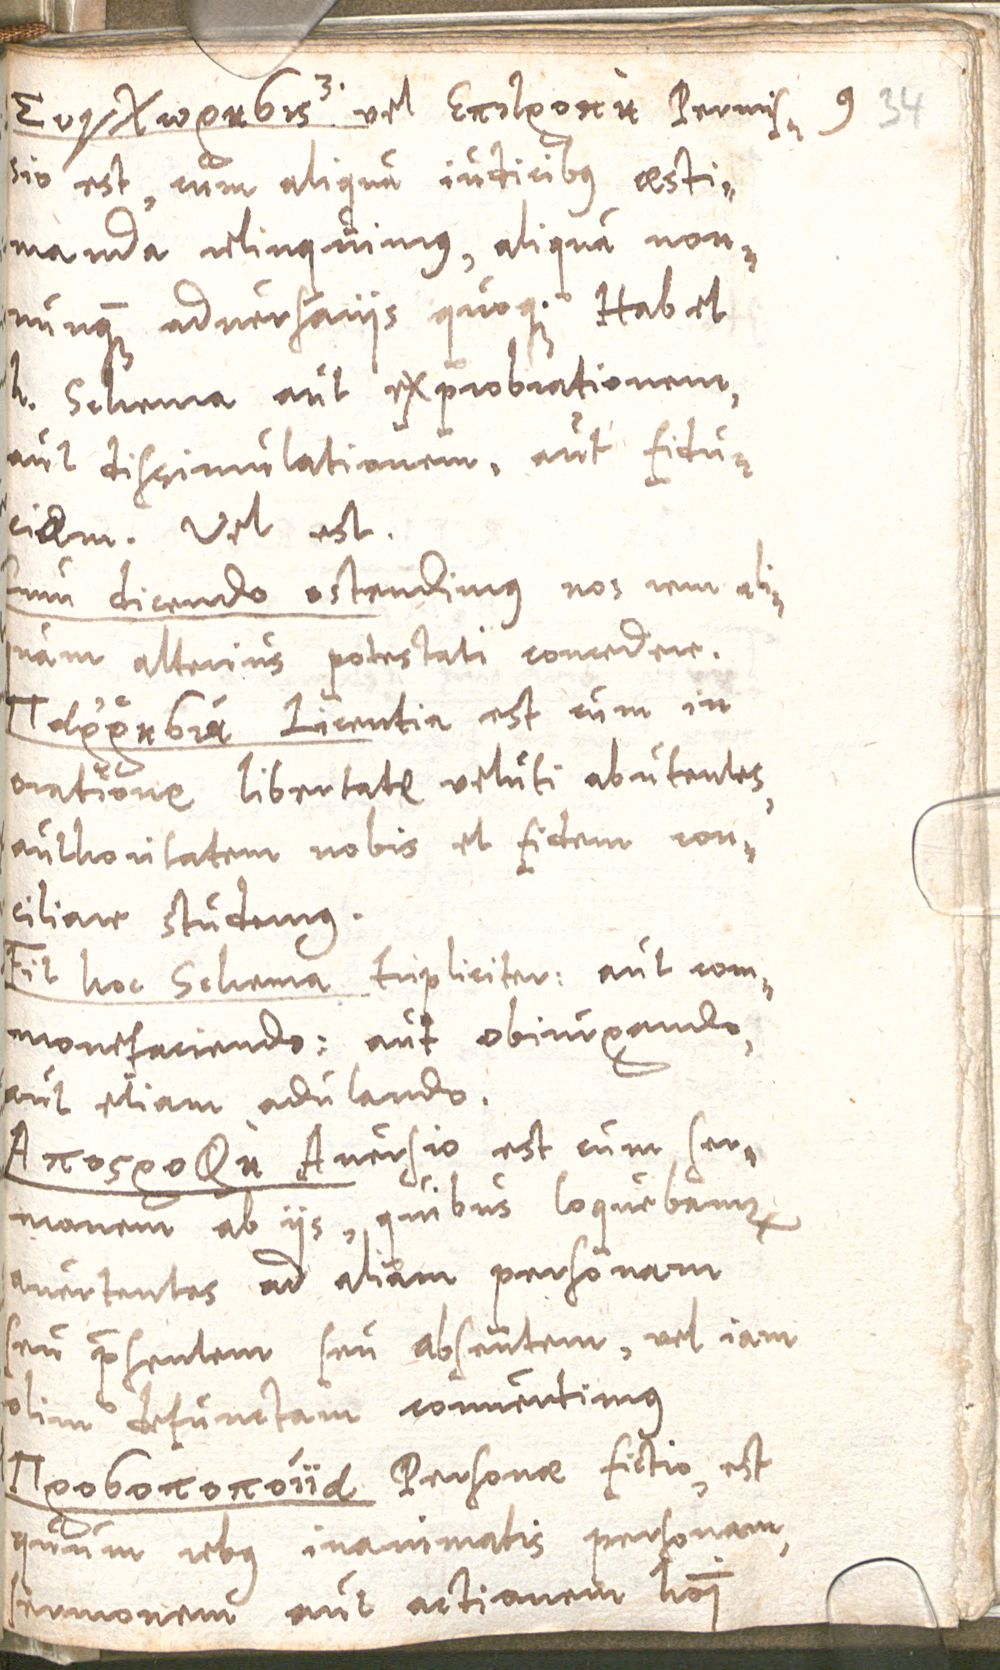 Συγχωρησις 3. vel Επιτροπὴ Permis„ 9 34
sio est, cùm aliqua iudicibꝰ æsti„
manda relinquimꝰ, aliqua non„
nunq̄ȝ adversarijs quoqȝ. Habet
h. Schema aut exprobrationem,
aut dissimulationem, aut fidu„
ciam. Vel est.
Cum dicendo ostendimꝰ nos rem ali„
quam alterius potestati concedere.
Παῤῥησια Licentia est cum in
oratione libertate veluti abutentes,
authoritatem nobis et fidem con„
ciliare studemꝰ.
Fit hoc Schema tripliciter: aut com„
monefaciendo: aut obiurgando,
aut etiam adulando.
Αποϛροφὴ Aversio est cum ser„
monem ab ijs, quibus loquebamur
avertentes ad aliam personam
seu p̄sentem seu absentem, vel iam
olim defunctam convertimꝰ
Προσοποποιϊα Personæ fictio, est
quum rebꝰ inanimatis personam,
sermonem aut actionem hoī